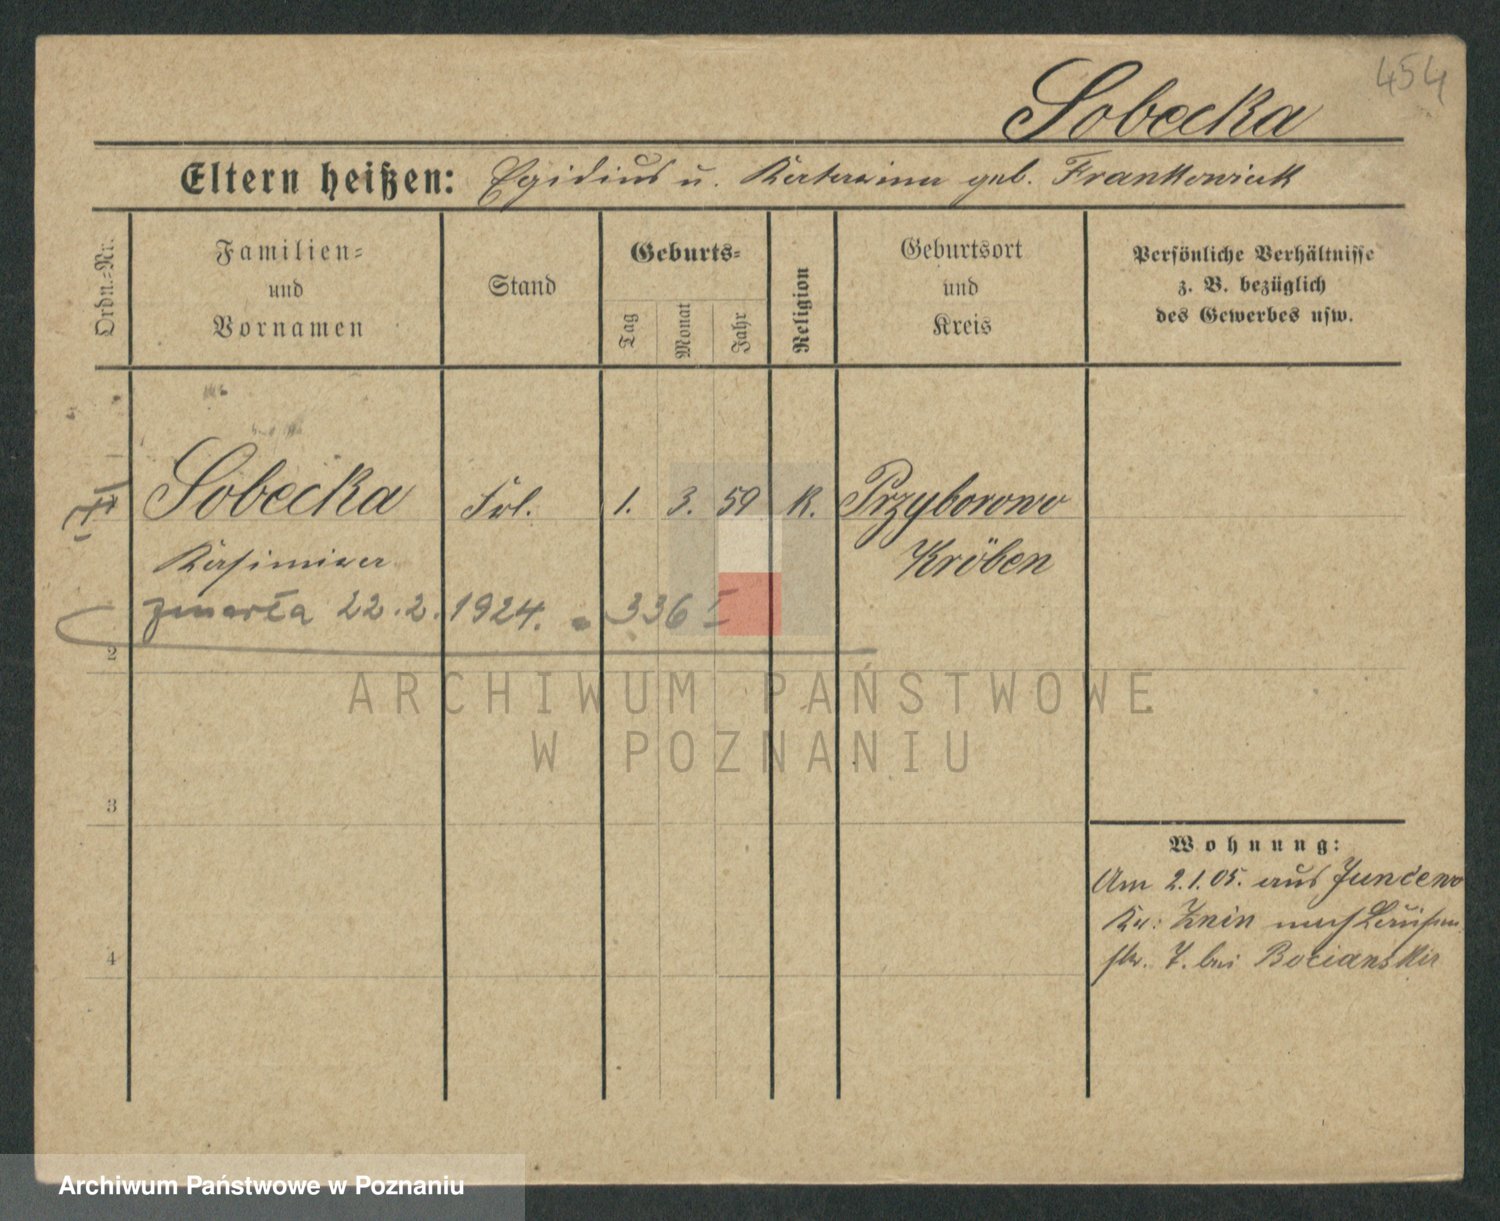 454
Sobecka
Eltern heißen: Egidius u. Katarzina geb. Frankowiak
Ordn.-Nr.
Familien-
und
Vornamen
Stand
Geburts-
Tag
Monat
Jahr
Religion
Geburtsort
und
Kreis
Persönliche Verhältnisse
z. B. bezüglich
des Gewerbes usw.
Sobecka Frl. 1. 3. 59 K. Przyborowo
Kasimira Kröben
zmarła 22.2.1924. 336 I
2
ARCHIWUM PAŃSTWOWE
W POZNANIU
3
Wohnung:
Am 2.1.05. aus Juncewo
Kr: Znin nach
str. 7. bei Bocianski
4
Archiwum Państwowe w Poznaniu